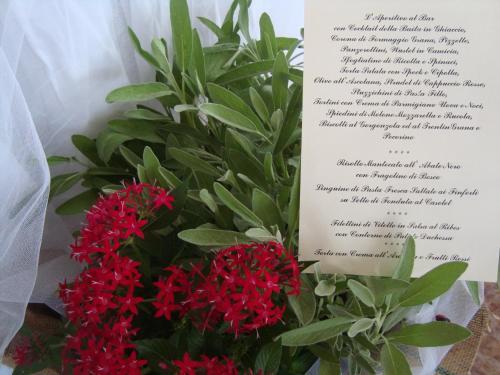 L'Aperitivo al Bar
con Cocktail della Baita in Ghiaccio,
Corona di Formaggio Grana, Pizzette,
Panzerottini, Wurstel in Camicia,
Sfogliatine di Ricotta e Spinaci,
Torta Salata con Speck e Cipolla,
Olive all'Ascolana, Strudel di Cappuccio Rosso,
Stuzzichini di Pasta Fillo,
Tortini con Crema di Parmigiano Uova e Noci,
Spiedini di Melone Mozzarella e Rucola,
Biscotti al Gorgonzola ed al TrentinGrana e
Pecorino
****
Risotto Mantecato all' Abate Nero
con Fragolino di Bosco
Linguine di Pasta Fresca Saltate ai Finferli
su Letto di Fonduta al Casolet
****
Filettini di Vitello in Salsa al Ribes
con Contorno di Patate Duchessa
****
Torta con Crema all' e Frutti Rossi